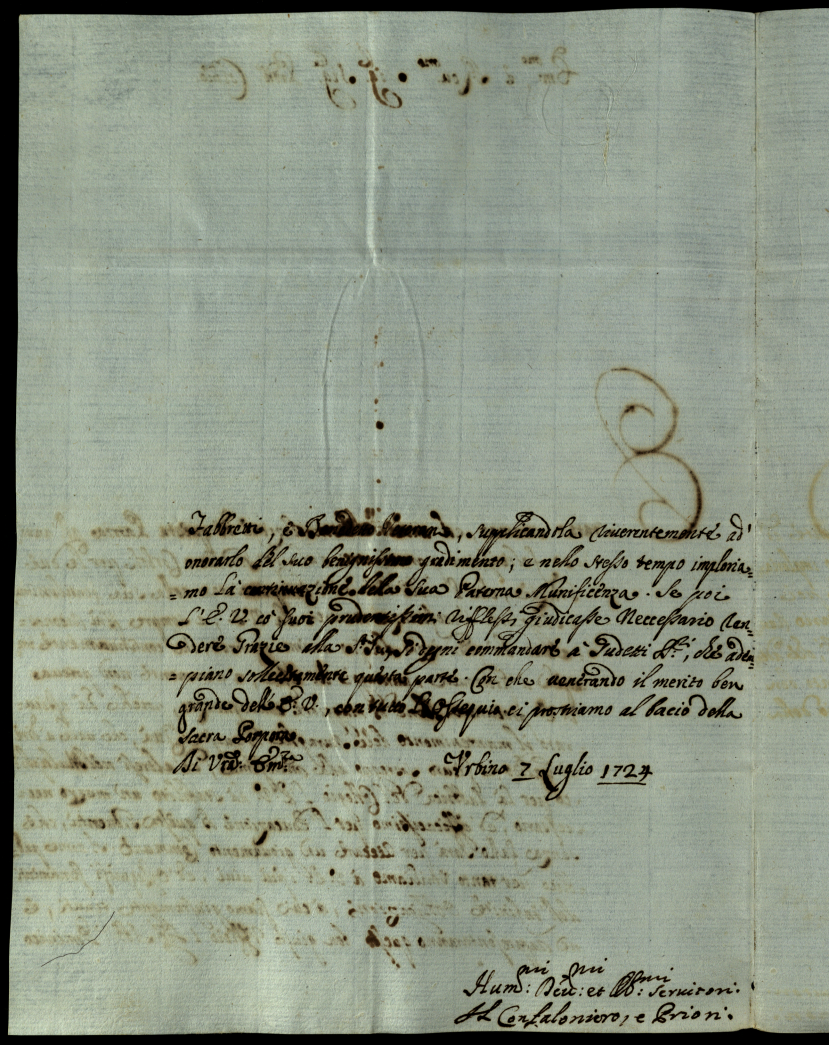 Fabbretti, e , supplicandola riverentemente ad'
onorarlo del suo benignissimo gradimento; e nello stesso tempo imploria=
=mo la continuazione della sua Paterna Munificenza. Se poi
l'E. V. co' suoi prudentissimi riflessi giudicasse Neccessario ren=
dere Grazie alla si degni commandare a' Sudetti che adem=
=piano sollecitamente questa parte. Con che venerando il merito ben
grande dell'E. V., con tutto l'Ossequio ci prostriamo al bacio della
Sacra Porpora
Di Vra Emza Urbino 7 Luglio 1724
Hum:mi Dev:mi et Ob:mi Servitori.
Il Confaloniero, e Priori.